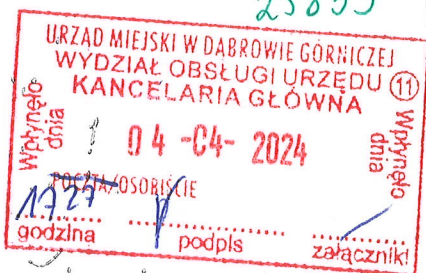 URZĄD MIEJSKI W DĄBROWIE GÓRNICZEJ
WYDZIAŁ OBSŁUGI URZĘDU 11
KANCELARIA GŁÓWNA
Wpłynęło dnia
04 -04- 2024
Wpłynęło dnia
POCZTA/OSOBIŚCIE
1727
godzina podpis załączniki